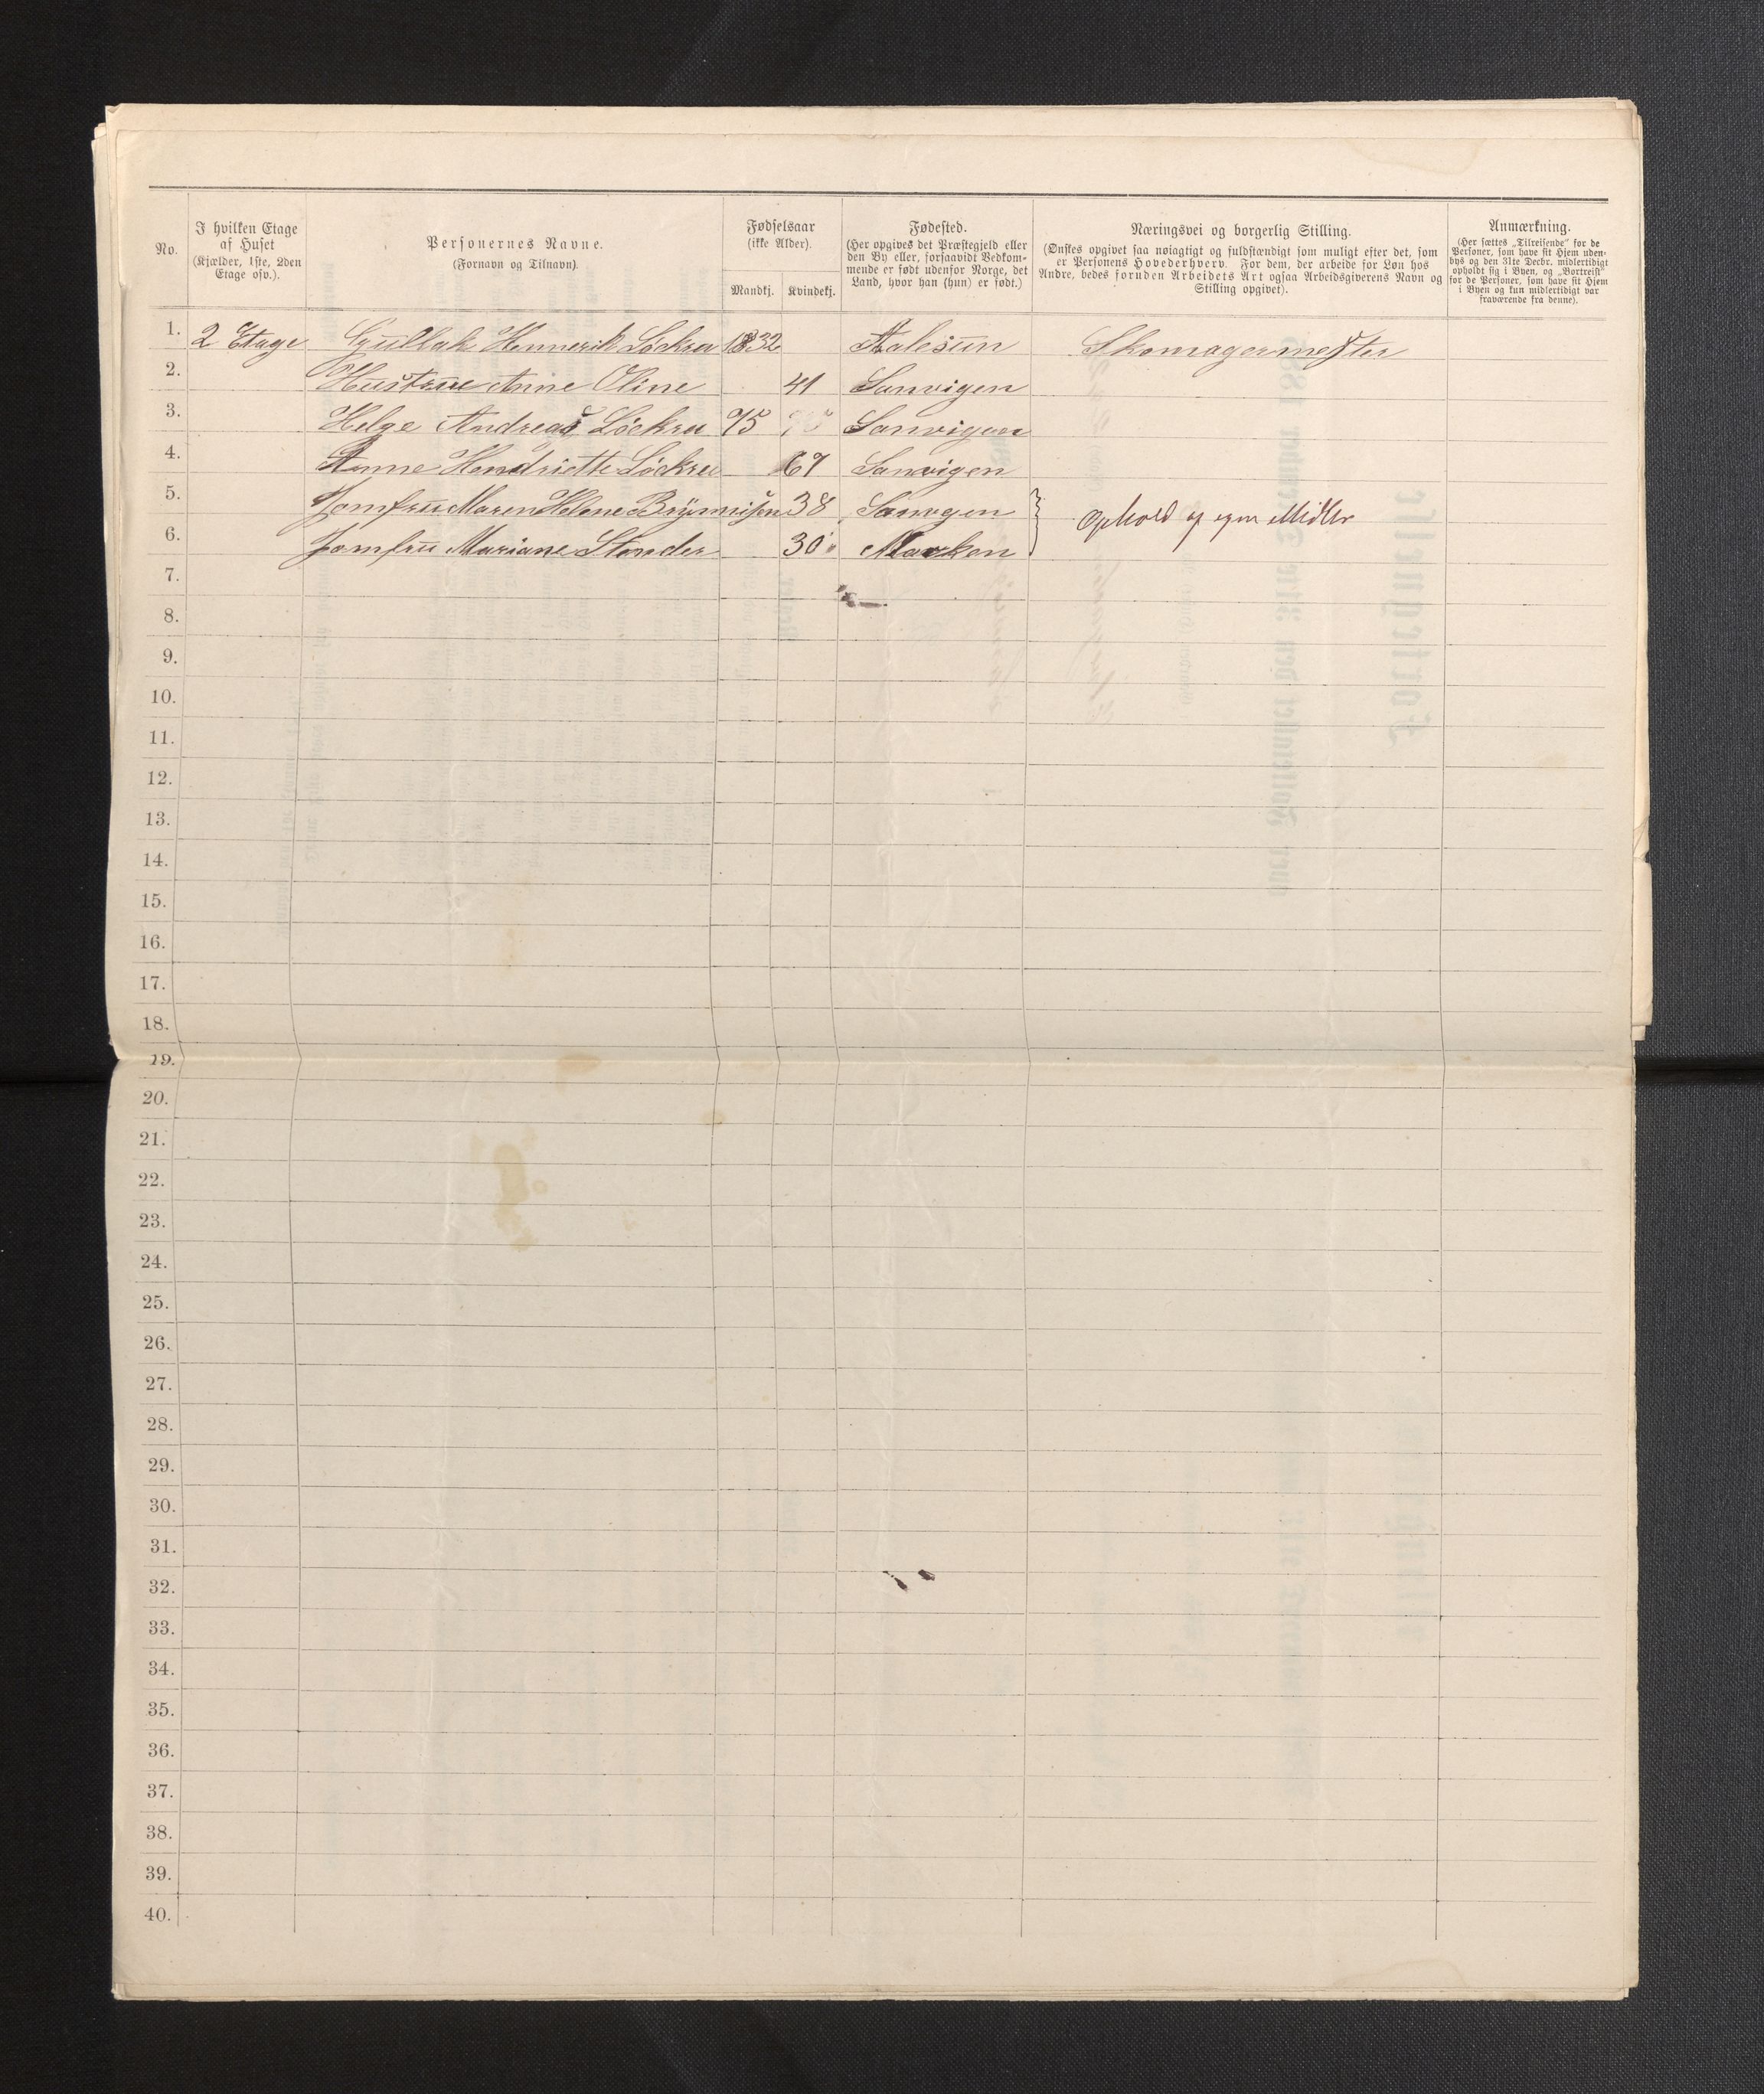 No.
I hvilken Etage
af Huset
(Kjælder, 1ste, 2den
Etage osv.).
Personernes Navne.
(Fornavn og Tilnavn).
Fødselsaar
(ikke Alder).
Mandkj. Kvindekj.
Fødested.
(Her opgives det Præstegjeld eller
den By eller, forsaavidt Vedkom-
mende er født udenfor Norge, det
Land, hvor han (hun) er født.)
Næringsvei og borgerlig Stilling.
(Ønskes opgivet saa nøiagtigt og fuldstændigt som muligt efter det, som
er Personens Hovederhverv. For dem, der arbeide for Løn hos
Andre, bedes foruden Arbeidets Art ogsaa Arbeidsgiverens Navn og
Stilling opgivet).
Anmærkning.
(Her sættes „Tilreisende" for de
Personer, som have sit Hjem uden-
bys og den 31te Decbr. midlertidigt
opholdt sig i Byen, og „Bortreist"
for de Personer, som have sit Hjem
i Byen og kun midlertidigt var
fraværende fra denne).
1. 2 Etage Gullak Hennerik Löckru 1832 Aalesun Skomagermester
2. Hustrue Anne Oline 41 Sanvigen
3. Helge Andreas Löckru 75 Sanvigen
4. Anne Hendriette Löckru 67 Sanvigen
5. Jomfru Maren Helene 38 Sanvgen
Ophold af egne Midler
6. Jomfru Mariane 30 Marken
7.
8.
9.
10.
11.
12.
13.
14.
15.
16.
17.
18.
19.
20.
21.
22.
23.
24.
25.
26.
27.
28.
29.
30.
31.
32.
33.
34.
35.
36.
37.
38.
39.
40.